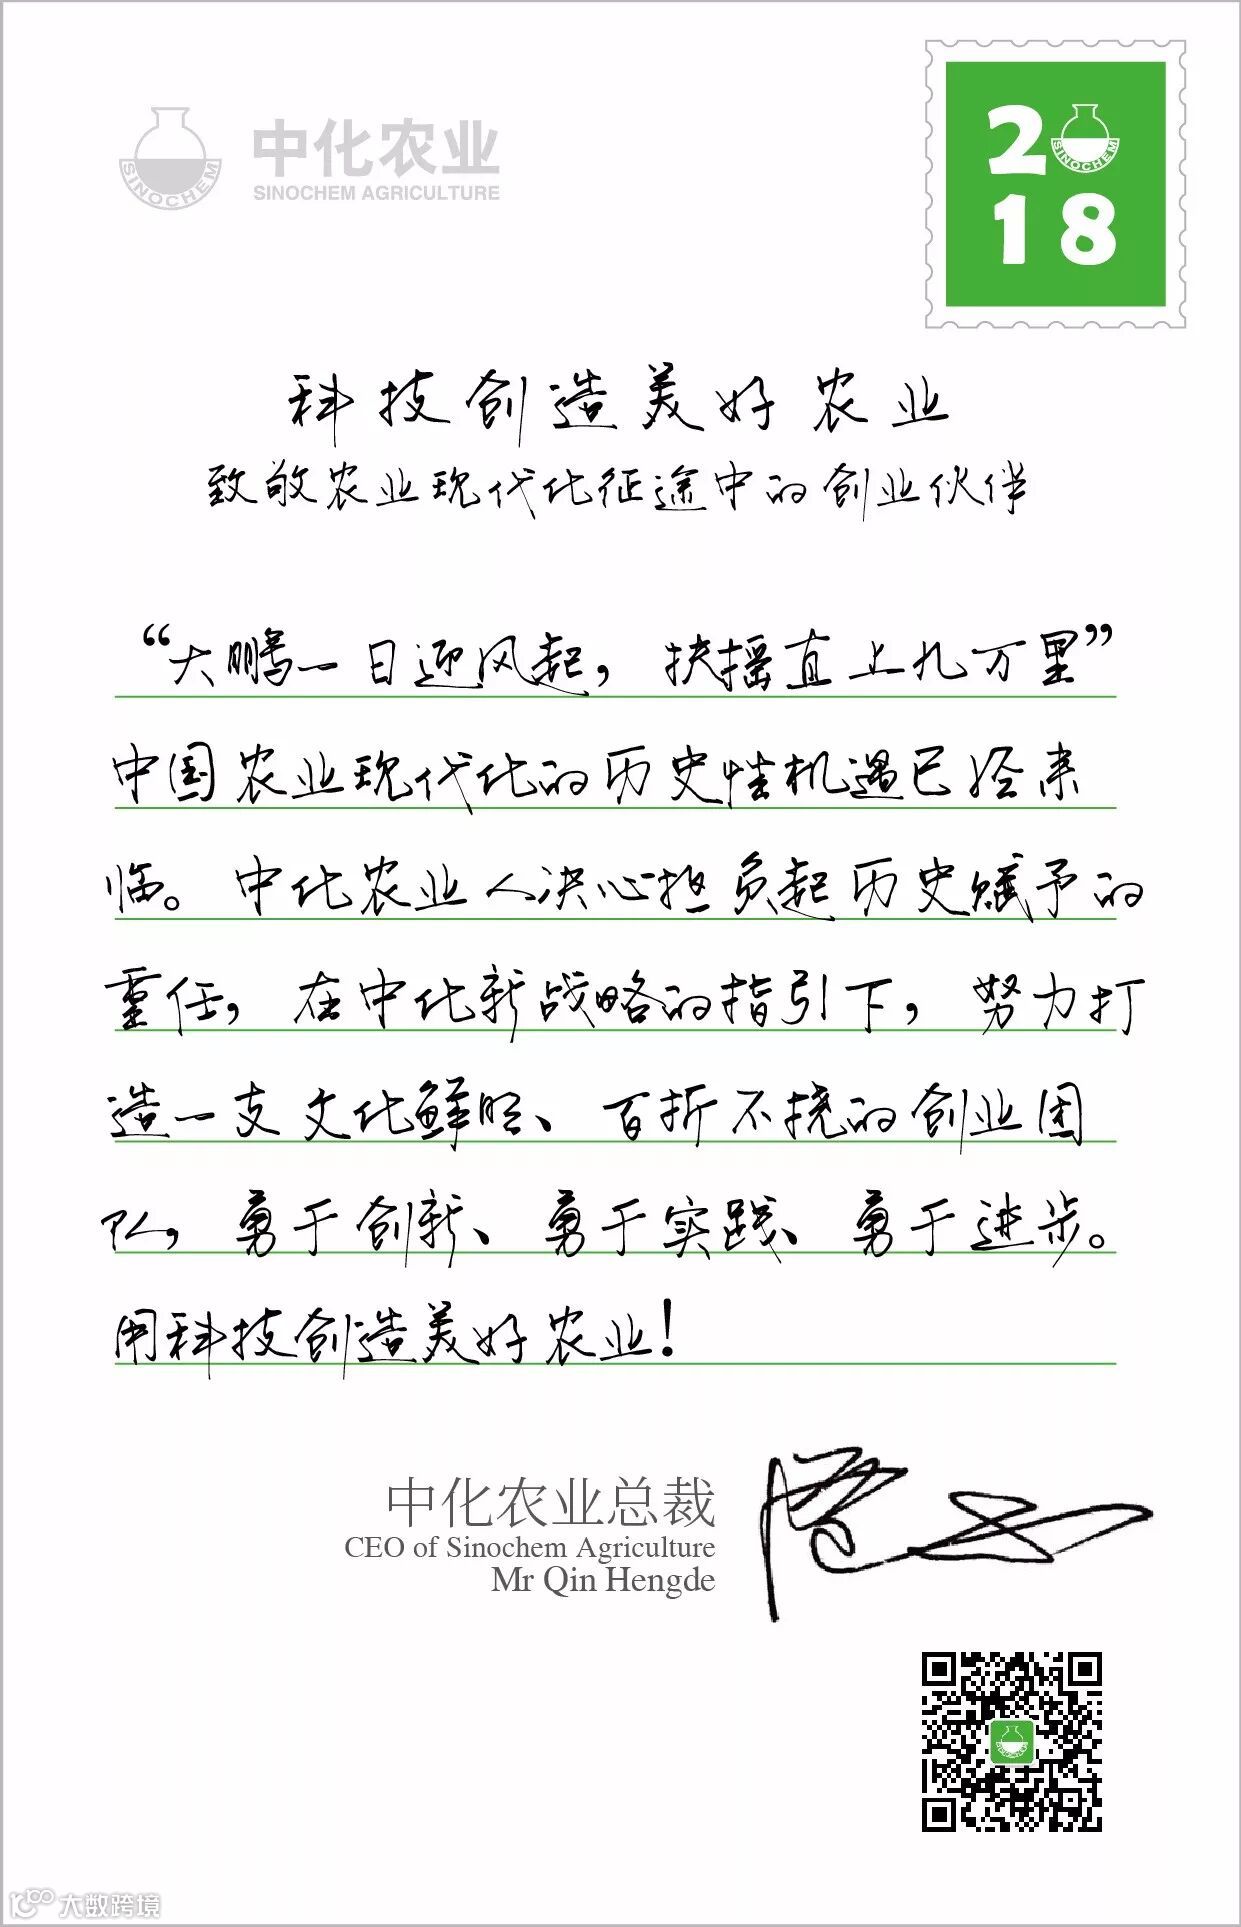 SINOCHEM
中化农业
SINOCHEM AGRICULTURE
2
SINOCHEM
18
科技创造美好农业
致敬农业现代化征途中的创业伙伴
“大鹏一日迎风起，扶摇直上九万里”
中国农业现代化的历史性机遇已经来
临。中化农业人决心担负起历史赋予的
重任，在中化新战略的指引下，努力打
造一支文化鲜明、百折不挠的创业团
队，勇于创新、勇于实践、勇于进步。
用科技创造美好农业！
中化农业总裁
CEO of Sinochem Agriculture
Mr Qin Hengde
SINOCHEM
大数跨境